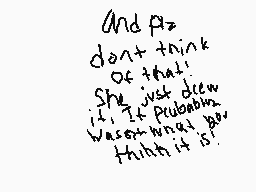 And plz
dont think
of that!
She just drew
it. It Prubabliy
wasent what you
think it is!